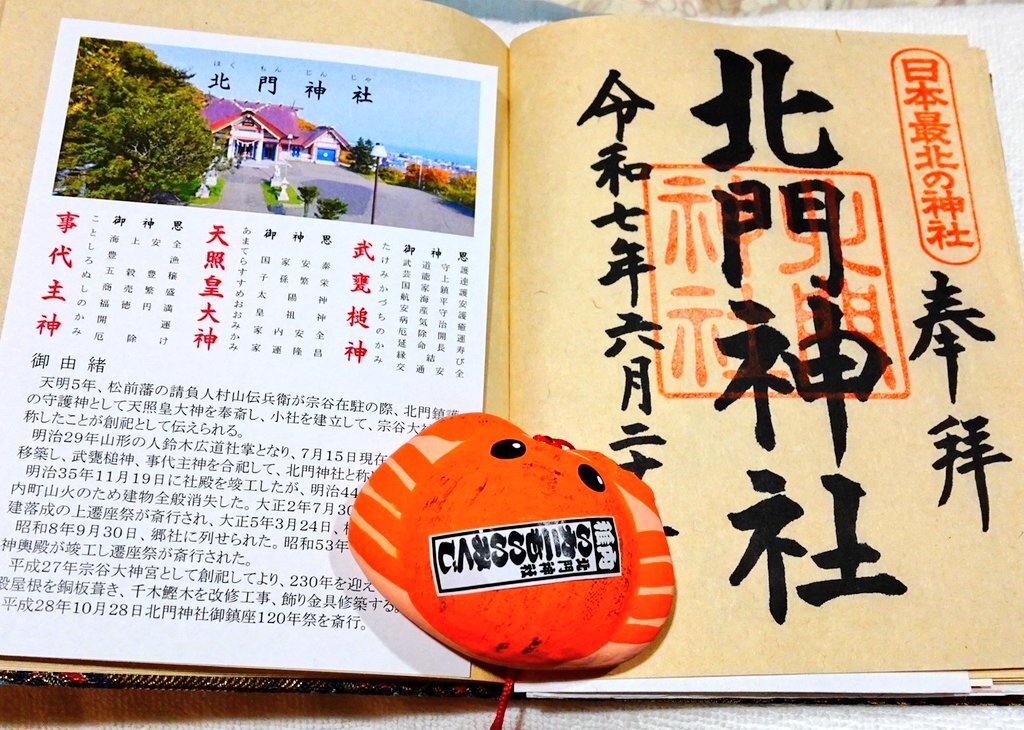 ほくもんじんじゃ
北門神社
武甕槌神
たけみかづちのかみ
御神恩
武道守護
芸能上達
国家鎮護
航海平安
安産守護
病気治癒
厄除開運
延命長寿
縁結び
交通安全
天照皇大神
御神恩
国家安泰
子孫繁栄
太陽神
皇祖神
家内安全
家運隆昌
事代主神
ことしろぬしのかみ
御神恩
海上安全
豊漁
五穀豊穣
商売繁盛
福徳円満
開運
厄除け
御由緒
天明5年、松前藩の請負人村山伝兵衛が宗谷在駐の際、北門鎮護
の守護神として天照皇大神を奉斎し、小社を建立して、宗谷大
称したことが創祀として伝えられる。
明治29年山形の人鈴木広道社掌となり、7月15日現在
移築し、武甕槌神、事代主神を合祀して、北門神社と称
明治35年11月19日に社殿を竣工したが、明治44
内町山火のため建物全般消失した。大正2年7月30
建落成の上遷座祭が斎行され、大正5年3月24日、
昭和8年9月30日、郷社に列せられた。昭和53年
神輿殿が竣工し遷座祭が斎行された。
平成27年宗谷大神宮として創祀してより、230年を迎え
殿屋根を銅板葺き、千木鰹木を改修工事、飾り金具修築する。
平成28年10月28日北門神社御鎮座120年祭を斎行。
日本最北の神社
奉拝
北門神社
北門神社
令和七年六月二十
稚内
北門神社